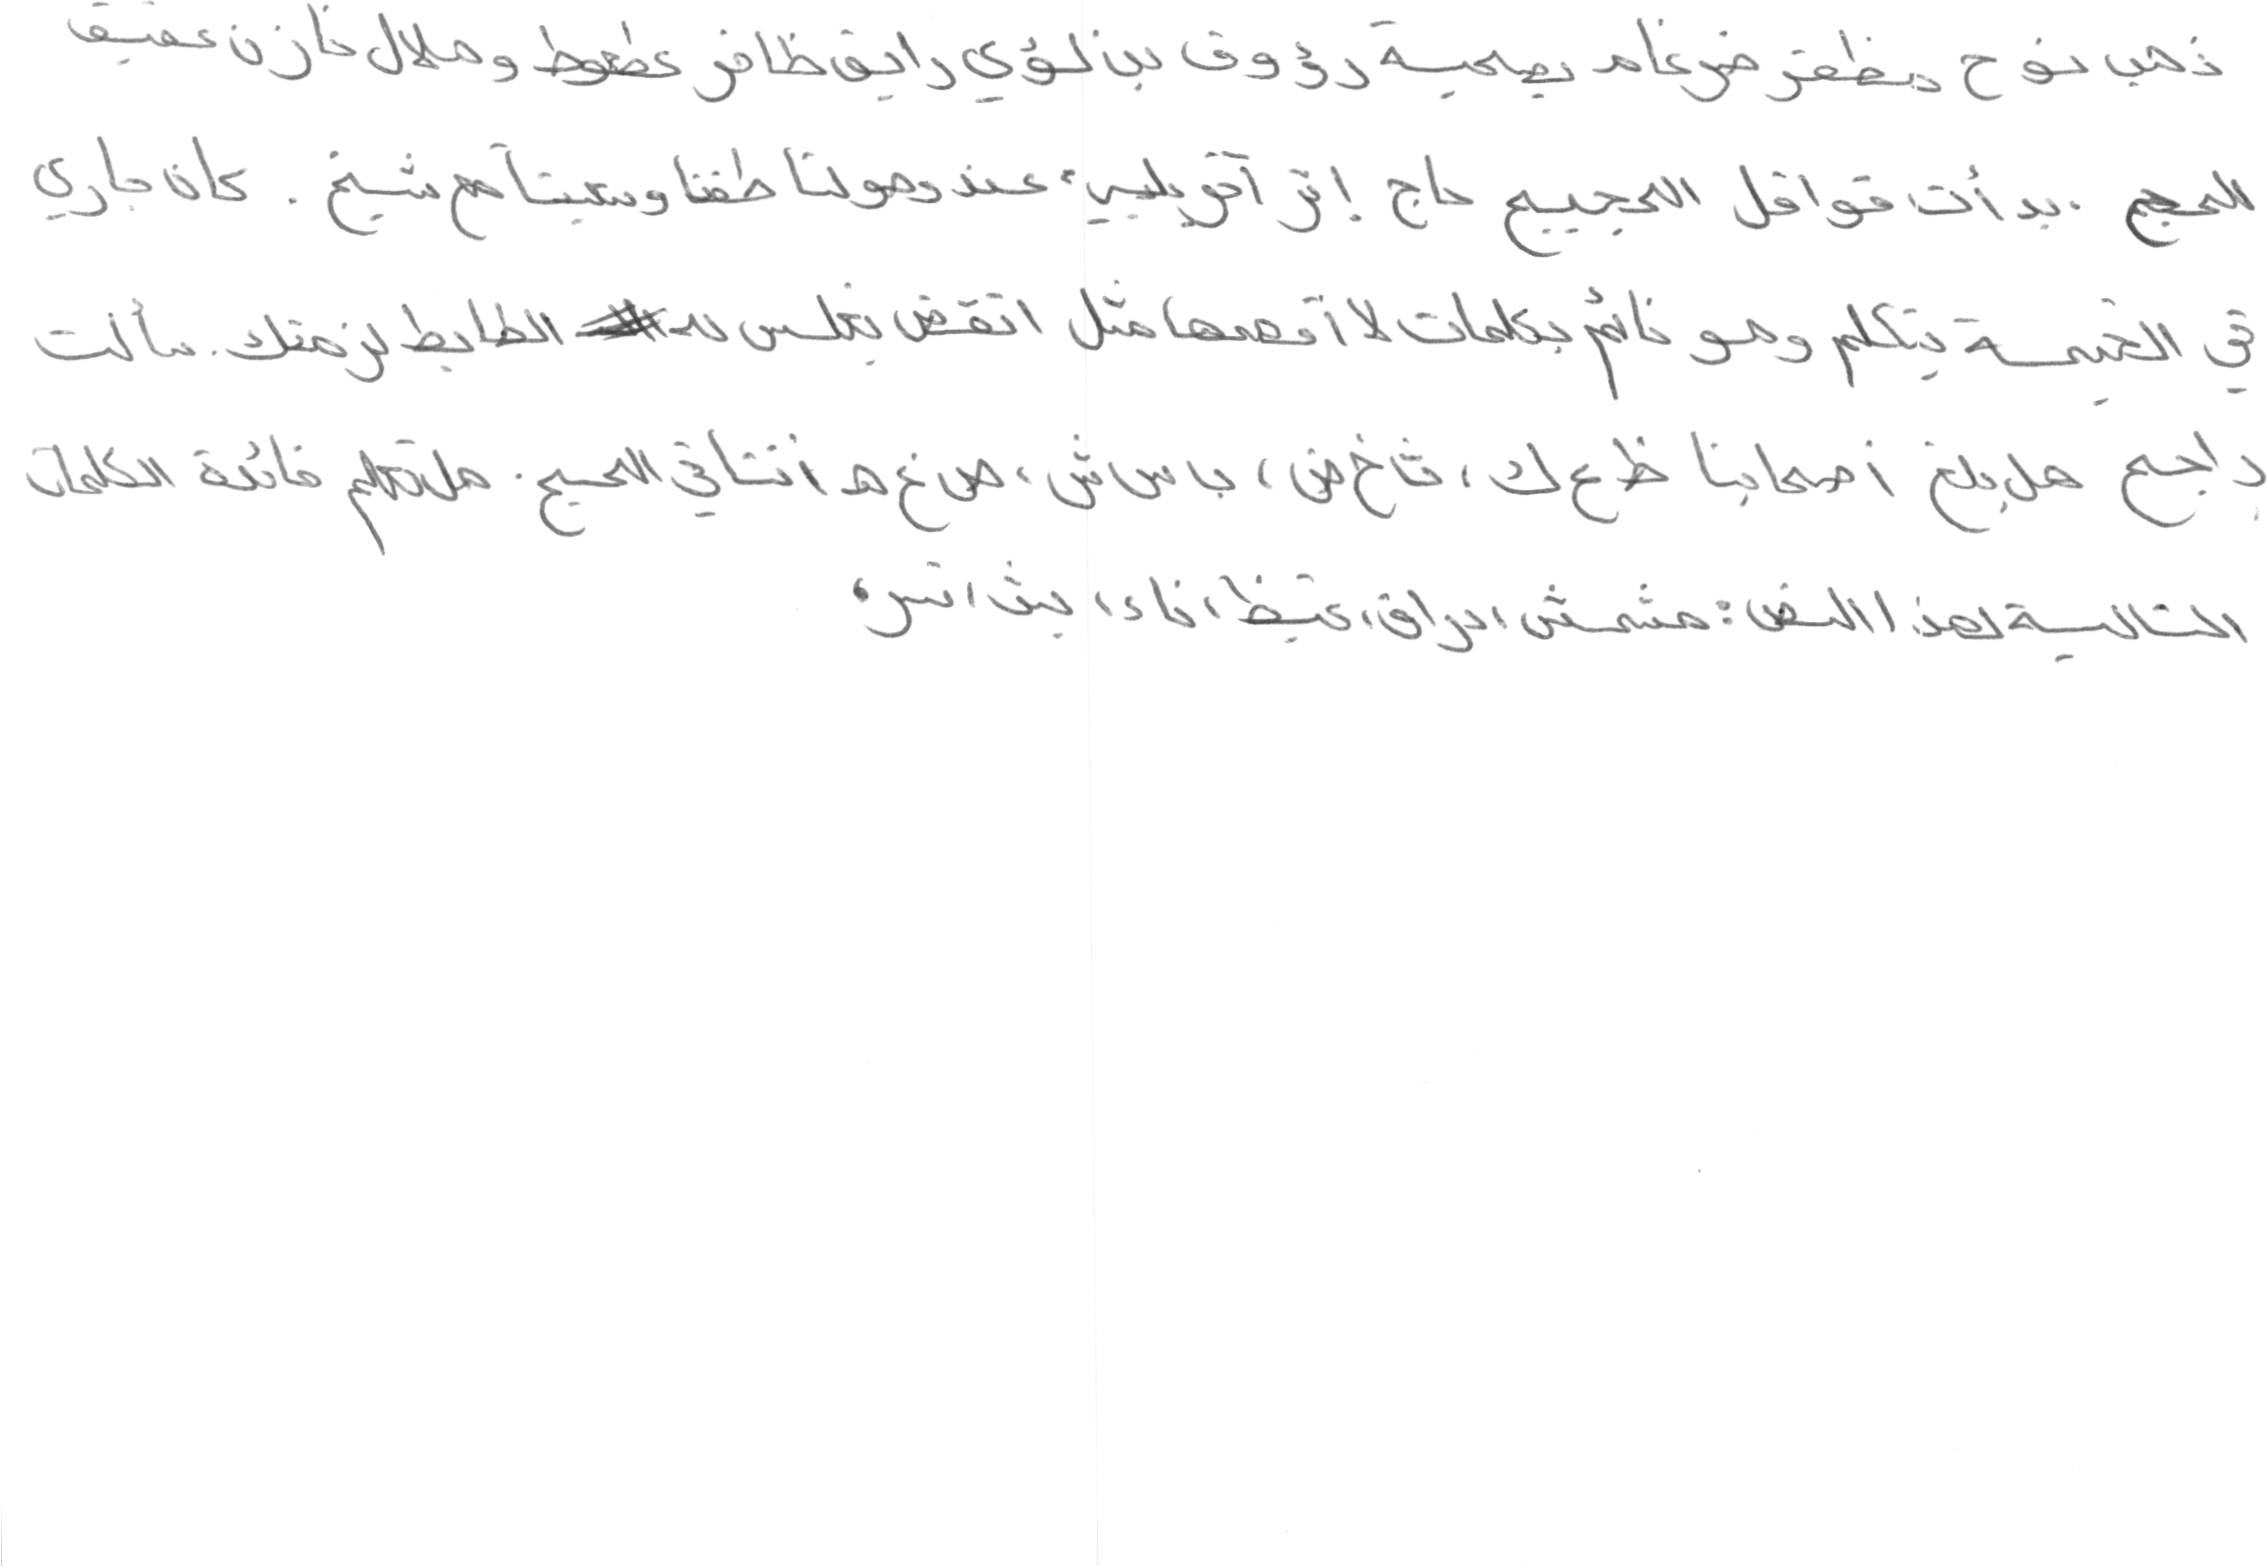 ذهب نوح مظفر ضرغام بصحبة رؤوف بن لؤي رايق ظافر عطعوط وهلال خازن عفيف
للحج . بدأت قوافل الحجيج حاج إثر آخر بلبي، عند وصولنا طفنا وسعينا مع شيخ . كان جاري
في الخيمة يتكلم وهو نائم بكلمات لا أفهمها مثل انقض بغلس الظابط لزمتك . سألت
راجح هل بلغ أصحابنا ظ ع ك ، ث أ خ ض ، ب ا س ش ، ص غ هـ انثنا في الحج . هل تعلم فائدة الكلمات
التالية لهذا النص : مشمش ، براق ، غيظ ، اذاء ، بث ، اثره